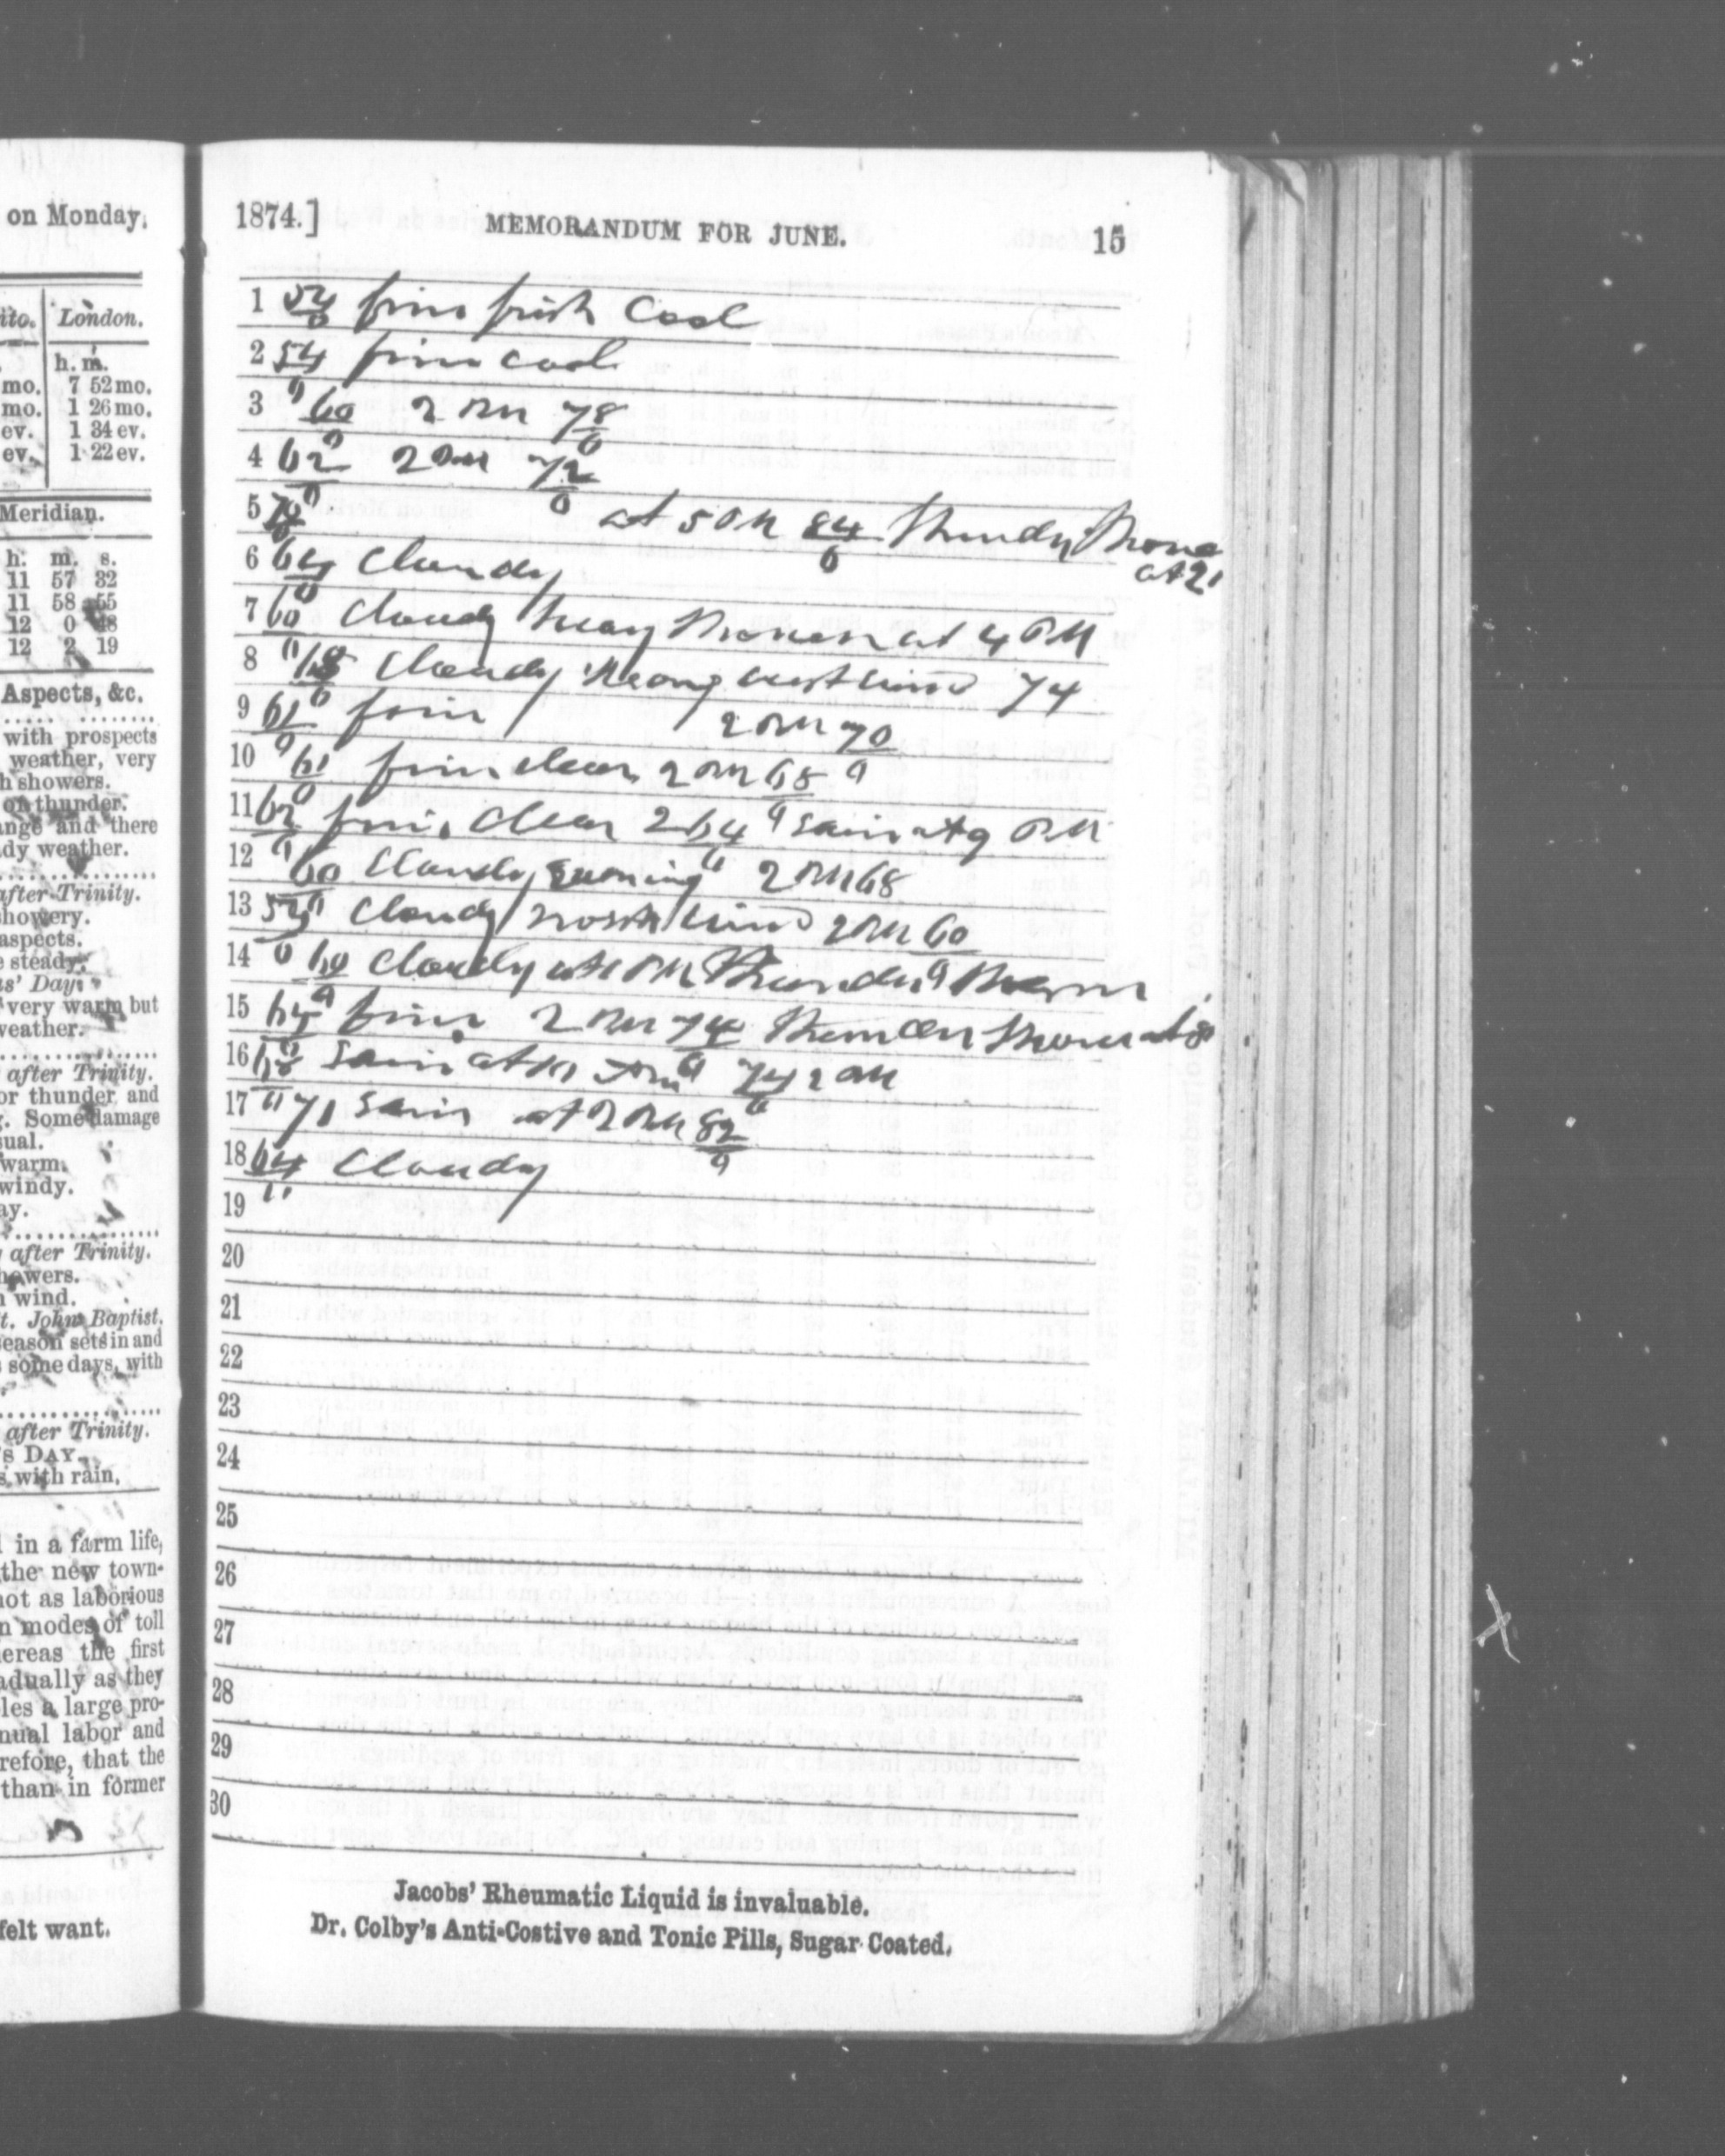 on Monday.
ito. London.
h. m.
mo. 7 52 mo.
mo. 1 26 mo.
ev. 1 34 ev.
ev. 1 22 ev.
Meridian.
h. m. s.
11 57 32
11 58 55
12 0 48
12 2 19
Aspects, &c.
with prospects
weather, very
h showers.
of thunder.
ange and there
dy weather.
after Trinity.
showery.
aspects.
e steady.
s' Day.
very warm but
weather.
after Trinity.
or thunder and
g. Some damage
sual.
warm.
windy.
ay.
after Trinity.
howers.
n wind.
t. John Baptist.
season sets in and
s some days, with
after Trinity.
's DAY.
s with rain.
l in a farm life,
the new town-
not as laborious
n modes of toll
hereas the first
adually as they
les a large pro-
nual labor and
refore, that the
than in former
felt want.
1874.] MEMORANDUM FOR JUNE. 15
1 54/0 fine fresh Cool
2 54 fine cool
3 60 2 PM 78/0
4 62 2 PM 72/0
5 70 at 5 PM 84/0 thundy
6 64 Cloudy
7 60 Cloudy at 4 PM
8 68 Cloudy strong west wind 74
9 61 fine 2 PM 70
10 61 fine clear 2 PM 68
11 62 fine clear 2 64 rain at 9 PM
12 60 Cloudy evening 2 PM 68
13 Cloudy north wind 2 PM 60
14 60 Cloudy at PM Thunder
15 fine 2 PM 74
16 68 rain at 74 2 PM
17 71 rain at 2 PM 82
18 64 Cloudy
19
20
21
22
23
24
25
26
27
28
29
30
Jacobs' Rheumatic Liquid is invaluable.
Dr. Colby's Anti-Costive and Tonic Pills, Sugar Coated.
X